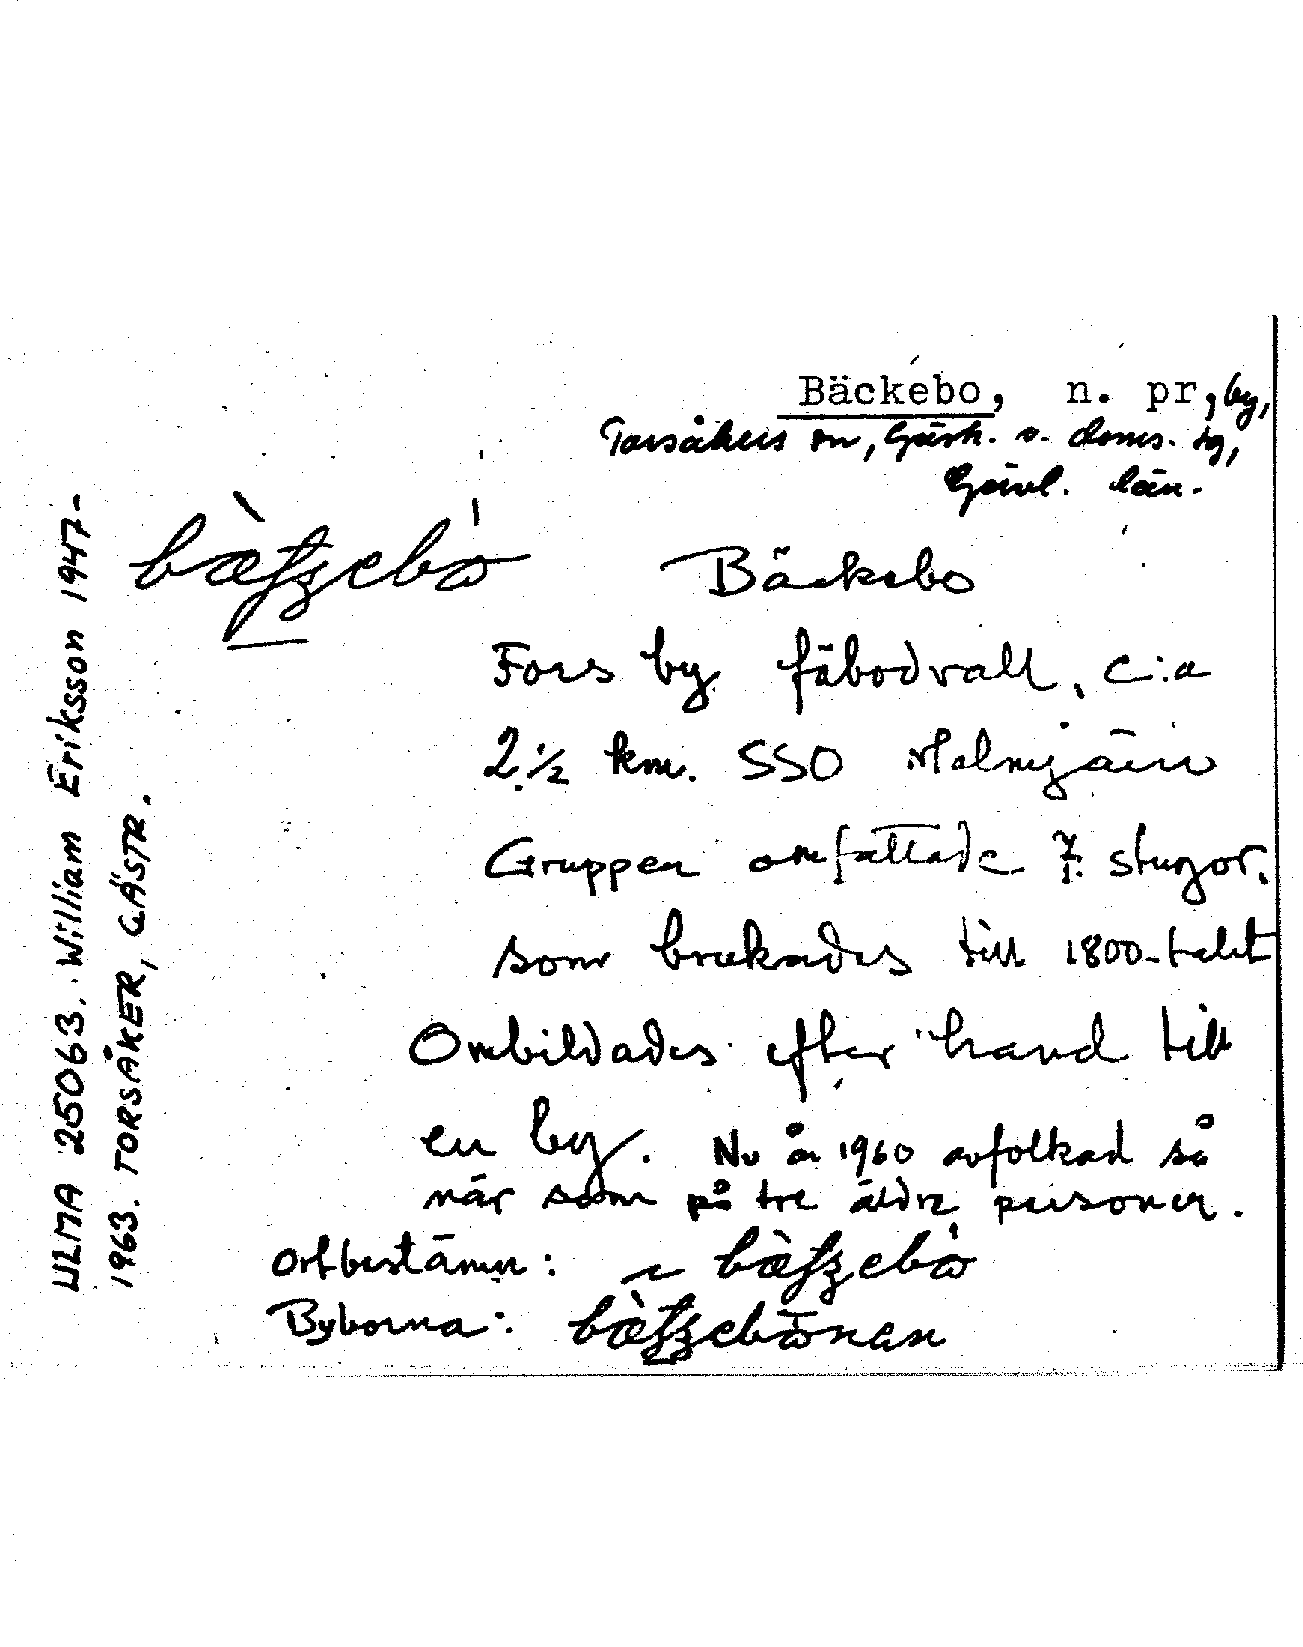 Bäckebo, n. pr, by,
Torsåkers sn, Gästr. ö. doms. tg,
Gävl. län.
Bäckebo
Fors by fäbodvall, c:a
2 1/2 km. SSO Malmjärn
Gruppen omfattade 7 stugor,
som brukades till 1800-talet
Ombildades efter hand till
en by. Nu år 1960 avfolkad så
när som på tre äldre personer.
Ortbestämn:
Byborna:
ULMA 25063. William Eriksson 1947-
1963. TORSÅKER, GÄSTR.